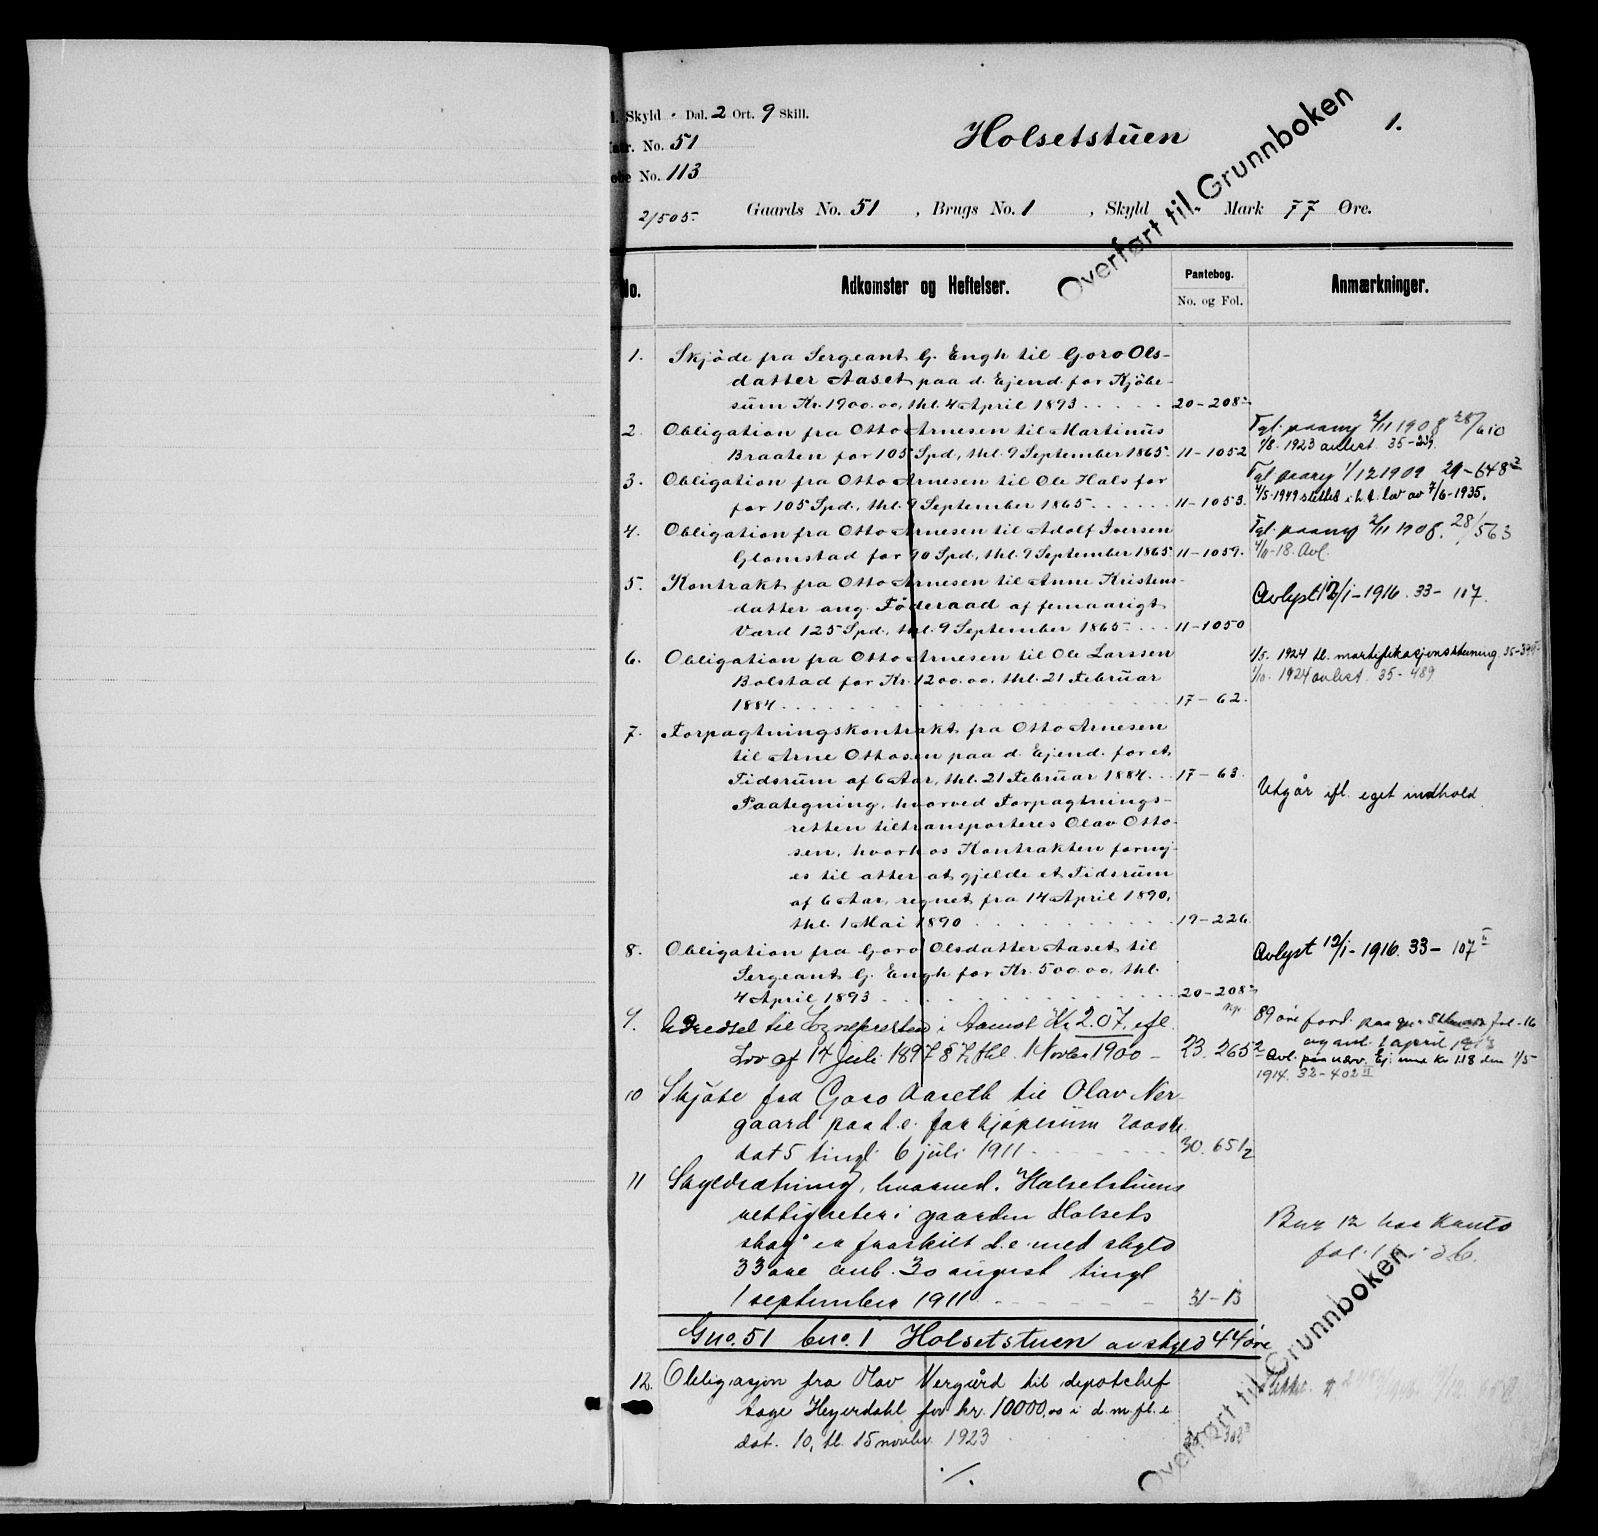 Skyld - Dal. 2 Ort. 9 Skill.
Matr. No. 51
Løbe No. 113
2/505
Holsetstuen
1.
Gaards No. 51 , Brugs No. 1 , Skyld - Mark 77 Øre.
Overført til Grunnboken
No. Adkomster og Heftelser. Pantebog. No. og Fol. Anmærkninger.
1. Skjøde fra Sergeant G. Engh til Goro Ols-
datter Aaset paa d. Ejend. for Kjøbe-
sum Kr. 1900.00, thl. 4 April 1893 . . . . . 20-208
2. Obligation fra Otto Arnesen til Martinus
Braaten for 105 Spd., thl. 9 September 1865. 11-1052
Tgl. paany 2/11 1908 28/610
1/8. 1923 avlest. 35-239
3. Obligation fra Otto Arnesen til Ole Hals for
for 105 Spd., thl. 9 September 1865 . . . . . 11-1053.
Tgl paany 1/12 1909 29-648
4/5-1949 slettet i h.t. lov av 7/6-1935.
4. Obligation fra Otto Arnesen til Adolf Iversen
Glomstad for 90 Spd., thl. 9 September 1865. 11-1059.
Tgl. paany 2/11 1908. 28/563
4/11-18. Avl.
5. Kontrakt fra Otto Arnesen til Anne Kristens-
datter ang. Føderaad af femaarigt
Værd 125 Spd., thl. 9 September 1865 . . . 11-1050
Avlyst 12/1-1916. 33-107.
6. Obligation fra Otto Arnesen til Ole Larssen
Bolstad for Kr. 1200.00, thl. 21 Februar
1884 . . . . . 17-62.
1/5. 1924 tl. mortifikasjonsstevning 35-390
1/10. 1924 avlest. 35-489
7. Forpagtningskontrakt fra Otto Arnesen
til Arne Ottosen paa d. Ejend. for et
Tidsrum af 6 Aar, thl. 21 Februar 1884. . . 17-63.
Paategning, hvorved Forpagtnings-
retten tiltransporteres Olav Otto-
sen, hvorhos Kontrakten forny-
es til atter at gjelde et Tidsrum
af 6 Aar, regnet fra 14 April 1890,
thl. 1 Mai 1890 . . . . . 19-226.
Utgår ifl. eget indhold
8. Obligation fra Goro Olsdatter Aaset til
Sergeant G. Engh for Kr. 500.00, thl.
4 April 1893 . . . . . 20-208
Avlyst 12/1-1916. 33-107 II
9. Udredsel til Sognepresten i Aamot Kr 2.07, efl
Lov af 14 Juli 1897 § 7, thl. 1 Novbr 1900 - 23. 265
89 øre ford. paa gn. fol-16
og avl. 1 april 1913
Avl. paa nærv. Ej. med Kr 1.18 den 1/5
1914. 32-402 II
10 Skjøte fra Goro Aaseth til Olav Ner-
gaard paa d.e. for kjøpesum 2000 kr
dat 5 tingl. 6 juli 1911 . . . . . 30. 651
11 Skyldsætning, hvorved. "Holsetstuens
rettigheter i gaarden Holsets
skog" er fraskilt d.e. med skyld
33 øre avh. 30 august tingl
1 september 1911 . . . . . 31-13
Bnr 12 har konto
fol.
Gno. 51 bno. 1 Holsetstuen av skyld 44 øre
12. Obligasjon fra Olav Nergård til depotchef
Aage Heyerdahl for kr. 10000,00 i d.m.fl.e
dat. 10, tl. 15 novbr. 1923
./.
Overført til Grunnboken